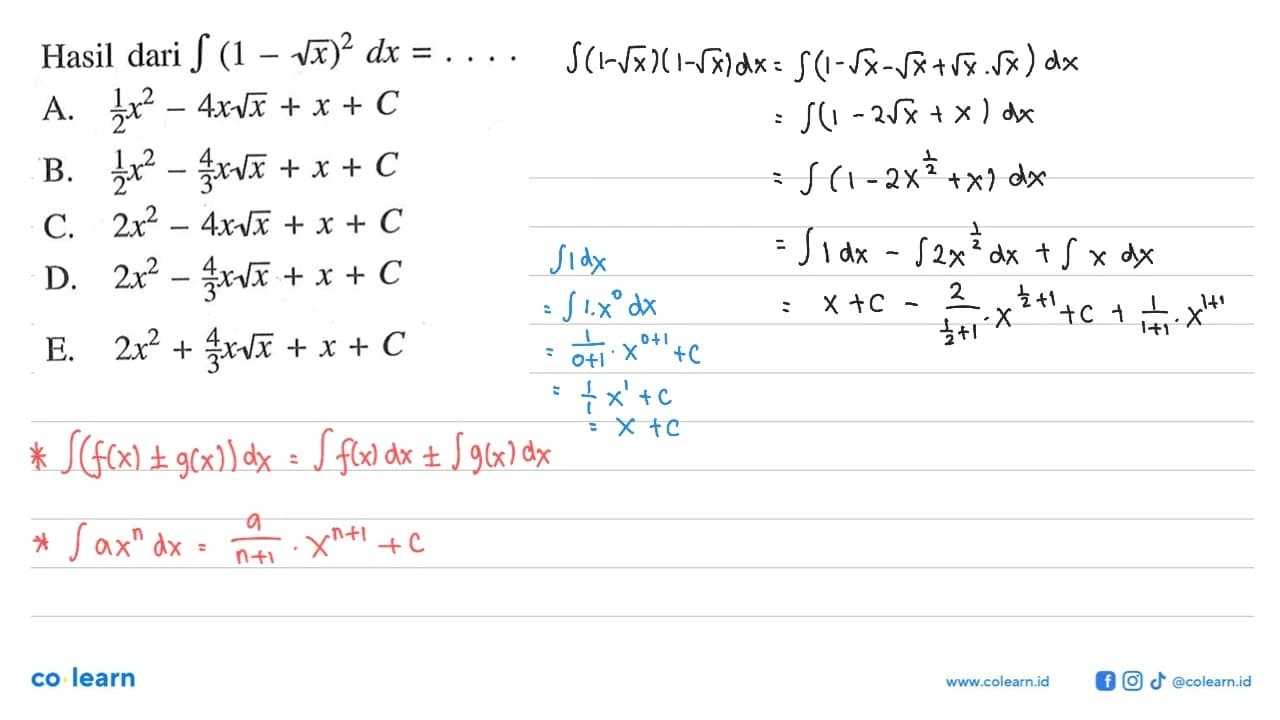 Hasil dari ∫ (1 − √x)² dx = . . . .
A. 1/2x² − 4x√x + x + C
B. 1/2x² − 4/3x√x + x + C
C. 2x² − 4x√x + x + C
D. 2x² − 4/3x√x + x + C
E. 2x² + 4/3x√x + x + C
∫(1-√x)(1-√x)dx = ∫(1-√x-√x+√x.√x) dx
= ∫(1 - 2√x + x) dx
= ∫(1 - 2x^(1/2) + x) dx
= ∫1 dx - ∫2x^(1/2) dx + ∫ x dx
= x + C - 2/(1/2+1) . x^(1/2+1) + C + 1/(1+1) . x^(1+1)
∫1dx
= ∫1.x⁰ dx
= 1/(0+1) . x^(0+1) + C
= 1/1 x¹ + C
= x + C
* ∫(f(x) ± g(x)) dx = ∫f(x) dx ± ∫g(x) dx
* ∫axⁿ dx = a/(n+1) . x^(n+1) + C
co learn
www.colearn.id
@colearn.id